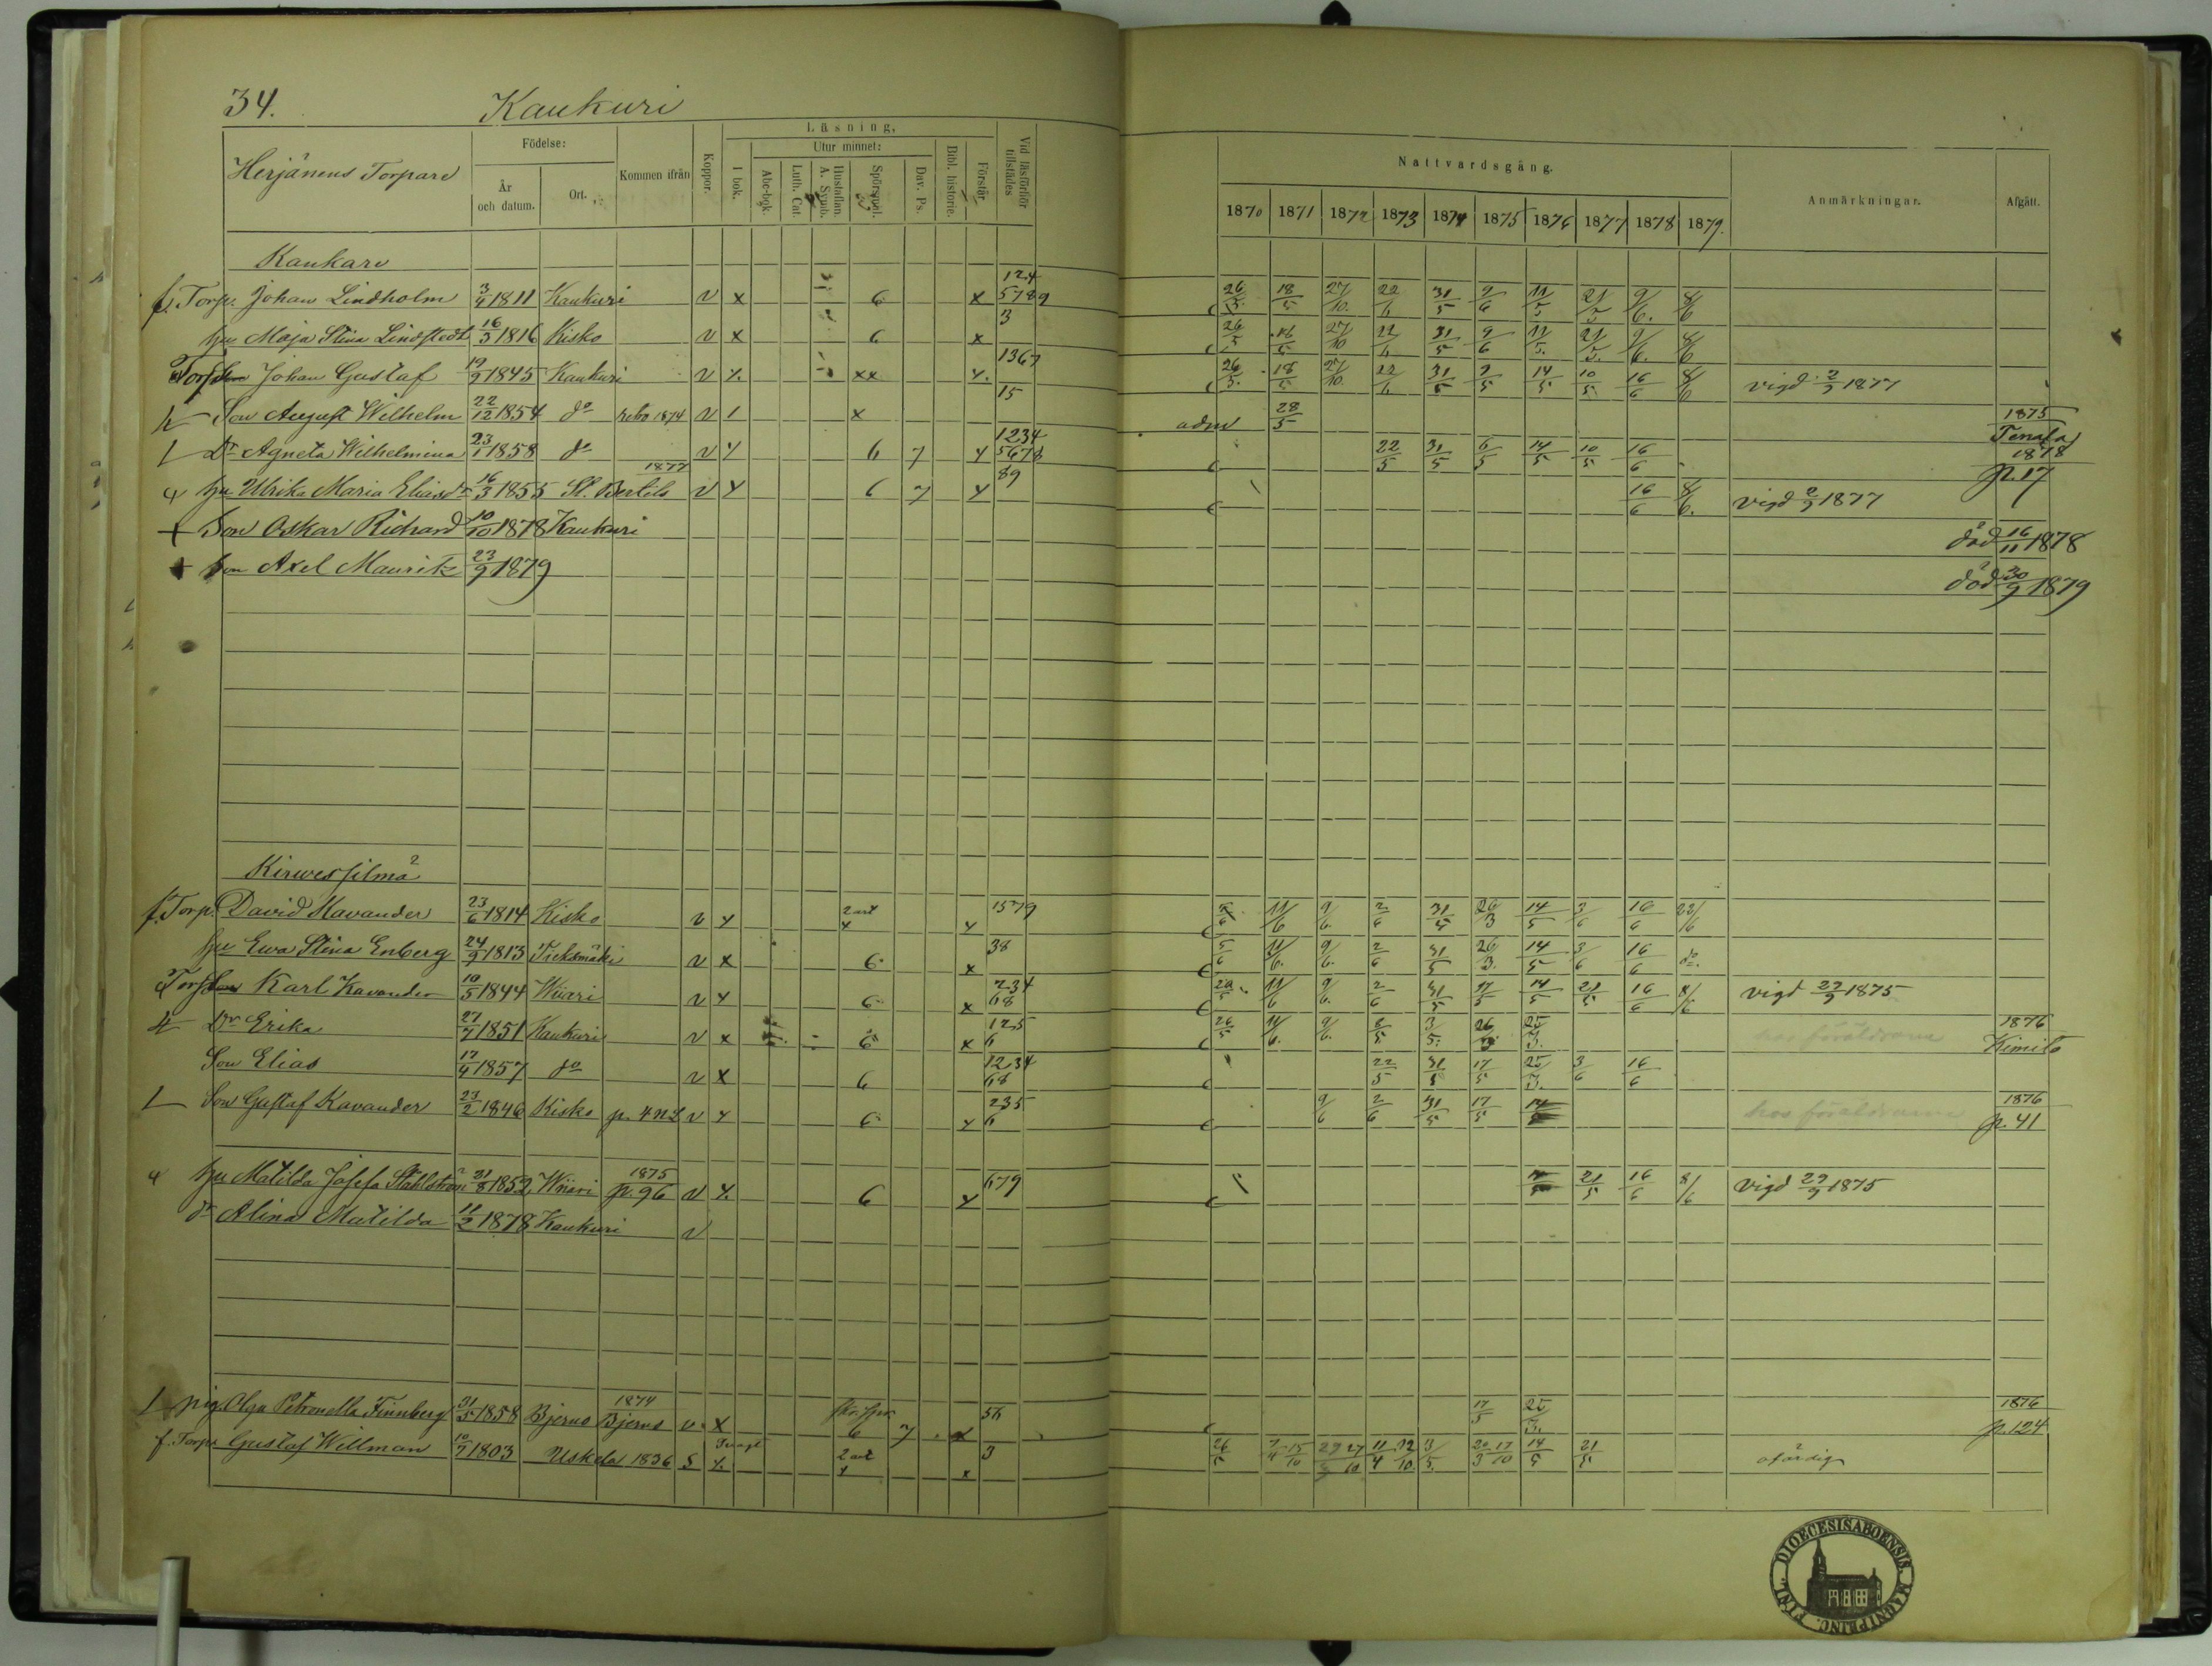 34. Kaukuri
Herjänens Torpare
Födelse:
År och datum.
Ort.
Kommen ifrån
Koppor.
Läsning,
I bok.
Utur minnet:
Abc-bok.
Luth. Cat.
Hustaflan. A. Symb.
Spörsmål.
Dav. Ps.
Bibl. historie.
Förstår
Vid läsförhör tillstädes
Nattvardsgång.
1870 1871 1872 1873 1874 1875 1876 1877 1878 1879.
Anmärkningar.
Afgått.
Kaukars
f. Torp. Johan Lindholm 3/4 1811 Kaukuri v x 6 x 124 5789 26/5. 18/5 27/10. 22/6 31/5 9/6 11/5 21/5 9/6. 8/6
hu Maja Stina Lindstedt 16/3 1816 Kisko v x 6 x 3 26/5 18/5 27/10 22/6 31/5 9/6 11/5. 21/5. 9/6. 8/6
Torp Johan Gustaf 19/9 1845 Kaukuri v x. xx x. 1367 26/5. 18/5 27/10. 22/6 31/5 9/5 14/5 10/5 16/6 8/6 vigd 2/9 1877
Son August Wilhelm 22/12 1854 do rebo 1874 v 1 x 15 adm 28/5 1875 Tenala
Dr Agneta Wilhelmina 23/1 1858 do v x 6 7 x 1234 5678 22/5 31/5 6/5 14/5 10/5 16/6 1878 p. 17
hu Ulrika Maria Eliasdr 16/3 1855 St. Bertils 1877 v x 6 7 x 89 16/6 8/6. vigd 2/9 1877
+ Son Oskar Richard 10/10 1878 Kaukuri död 16/11 1878
+ Son Axel Mauritz 23/9 1879 död 30/9 1879
Kirwessilmä
f. Torp. David Kavander 23/6 1814 Kisko v x 2 art x x 1579 5/6 11/6 9/6. 2/6 31/5 26/3 14/5 3/6 16/6 22/6
hu Ewa Stina Enberg 24/9 1813 v x 6 x 38 5/6 11/6. 9/6. 2/6 31/5 26/3. 14/5 3/6 16/6 do.
Torp Karl Kavander 10/5 1844 Wiiari v x 6 x 234 68 11/6 9/6. 2/6 31/5 17/5 14/5 21/5 16/6 8/6 vigd 29/9 1875
Dr Erika 27/7 1851 Kaukuri v x 6 x 125 6 26/5 11/6. 9/6. 2/5 3/5. 26/3 25/3. hos föräldrarne 1876 Kimito
Son Elias 17/4 1857 do v x 6 1234 68 22/5 31/5 17/5 25/3. 3/6 16/6
Son Gustaf Kavander 23/2 1846 Kisko p. 421 v x 6 x 235 6 9/6 2/6 31/5 17/5 14/5 hos föräldrarne 1876 p. 41
hu Matilda Josefa Ståhlström 31/8 1852 Wiiari 1875 p. 96 v x. 6 x 679 21/5 16/6 8/6 vigd 29/9 1875
dr Alina Matilda 11/2 1878 Kaukuri v
pig. Olga Petronella Finnberg 31/5 1858 Bjerno 1874 Bjerno v x 6 7 x 56 17/5 25/3. 1876 p. 124
f. Torp. Gustaf Willman 10/7 1803 Uskela 1836 s x. Svagt 2 art x x 3 26/5 15/10 27/10 11/4 12/10 3/5. 17/10 14/5 21/5 ofärdig
DIOECESIS ABOENSIS. MAGNI PRINC. FINL.